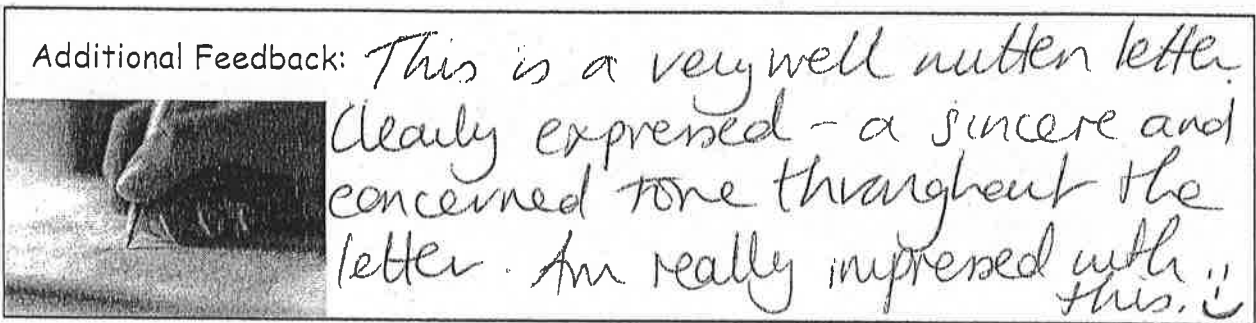 Additional Feedback: This is a very well written letter.
Clearly expressed - a sincere and
concerned tone throughout the
letter. Am really impressed with
this. :)